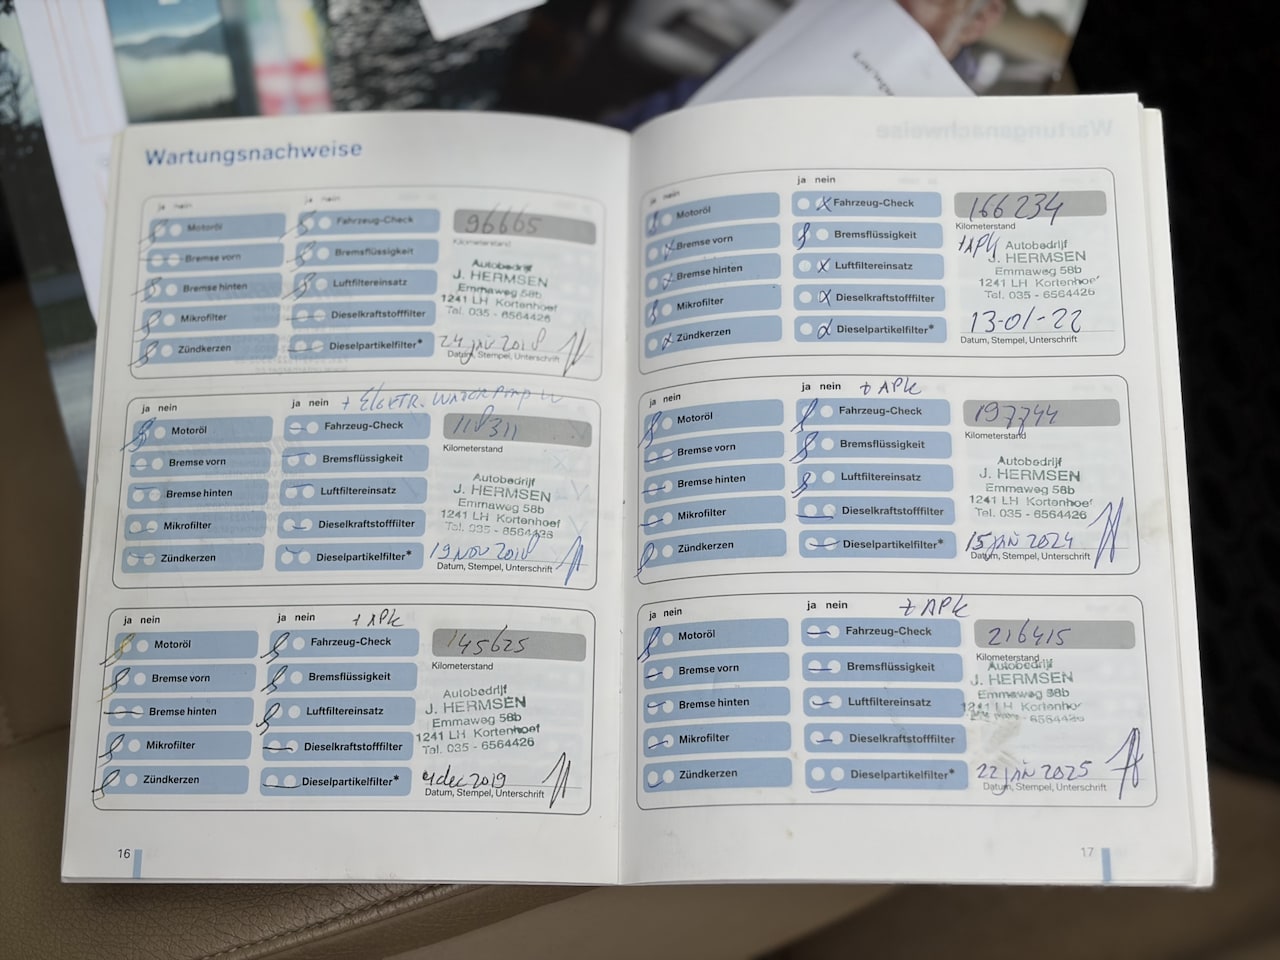 Wartungsnachweise
ja nein
ja nein
Motoröl
Bremse vorn
Bremse hinten
Mikrofilter
Zündkerzen
Fahrzeug-Check
Bremsflüssigkeit
Luftfiltereinsatz
Dieselkraftstofffilter
Dieselpartikelfilter*
96665
Kilometerstand
Autobedrijf
J. HERMSEN
Emmaweg 58b
1241 LH Kortenhoef
Tel. 035 - 6564426
24 jan 2018
Datum, Stempel, Unterschrift
ja nein
ja nein
+ ElectR. WATERPOMP
Motoröl
Bremse vorn
Bremse hinten
Mikrofilter
Zündkerzen
Fahrzeug-Check
Bremsflüssigkeit
Luftfiltereinsatz
Dieselkraftstofffilter
Dieselpartikelfilter*
118311
Kilometerstand
Autobedrijf
J. HERMSEN
Emmaweg 58b
1241 LH Kortenhoef
Tel. 035 - 6564426
19 NOV 2018
Datum, Stempel, Unterschrift
ja nein
ja nein
+ APK
Motoröl
Bremse vorn
Bremse hinten
Mikrofilter
Zündkerzen
Fahrzeug-Check
Bremsflüssigkeit
Luftfiltereinsatz
Dieselkraftstofffilter
Dieselpartikelfilter*
145625
Kilometerstand
Autobedrijf
J. HERMSEN
Emmaweg 58b
1241 LH Kortenhoef
Tel. 035 - 6564426
4 dec 2019
Datum, Stempel, Unterschrift
16
ja nein
ja nein
Motoröl
Bremse vorn
Bremse hinten
Mikrofilter
Zündkerzen
Fahrzeug-Check
Bremsflüssigkeit
Luftfiltereinsatz
Dieselkraftstofffilter
Dieselpartikelfilter*
166234
Kilometerstand
+APK
Autobedrijf
J. HERMSEN
Emmaweg 58b
1241 LH Kortenhoef
Tel. 035 - 6564426
13-01-22
Datum, Stempel, Unterschrift
ja nein
ja nein
+ APK
Motoröl
Bremse vorn
Bremse hinten
Mikrofilter
Zündkerzen
Fahrzeug-Check
Bremsflüssigkeit
Luftfiltereinsatz
Dieselkraftstofffilter
Dieselpartikelfilter*
197744
Kilometerstand
Autobedrijf
J. HERMSEN
Emmaweg 58b
1241 LH Kortenhoef
Tel. 035 - 6564426
15 jan 2024
Datum, Stempel, Unterschrift
ja nein
ja nein
+ APK
Motoröl
Bremse vorn
Bremse hinten
Mikrofilter
Zündkerzen
Fahrzeug-Check
Bremsflüssigkeit
Luftfiltereinsatz
Dieselkraftstofffilter
Dieselpartikelfilter*
216415
Kilometerstand
Autobedrijf
J. HERMSEN
Emmaweg 58b
1241 LH Kortenhoef
- 6564426
22 jan 2025
Datum, Stempel, Unterschrift
17